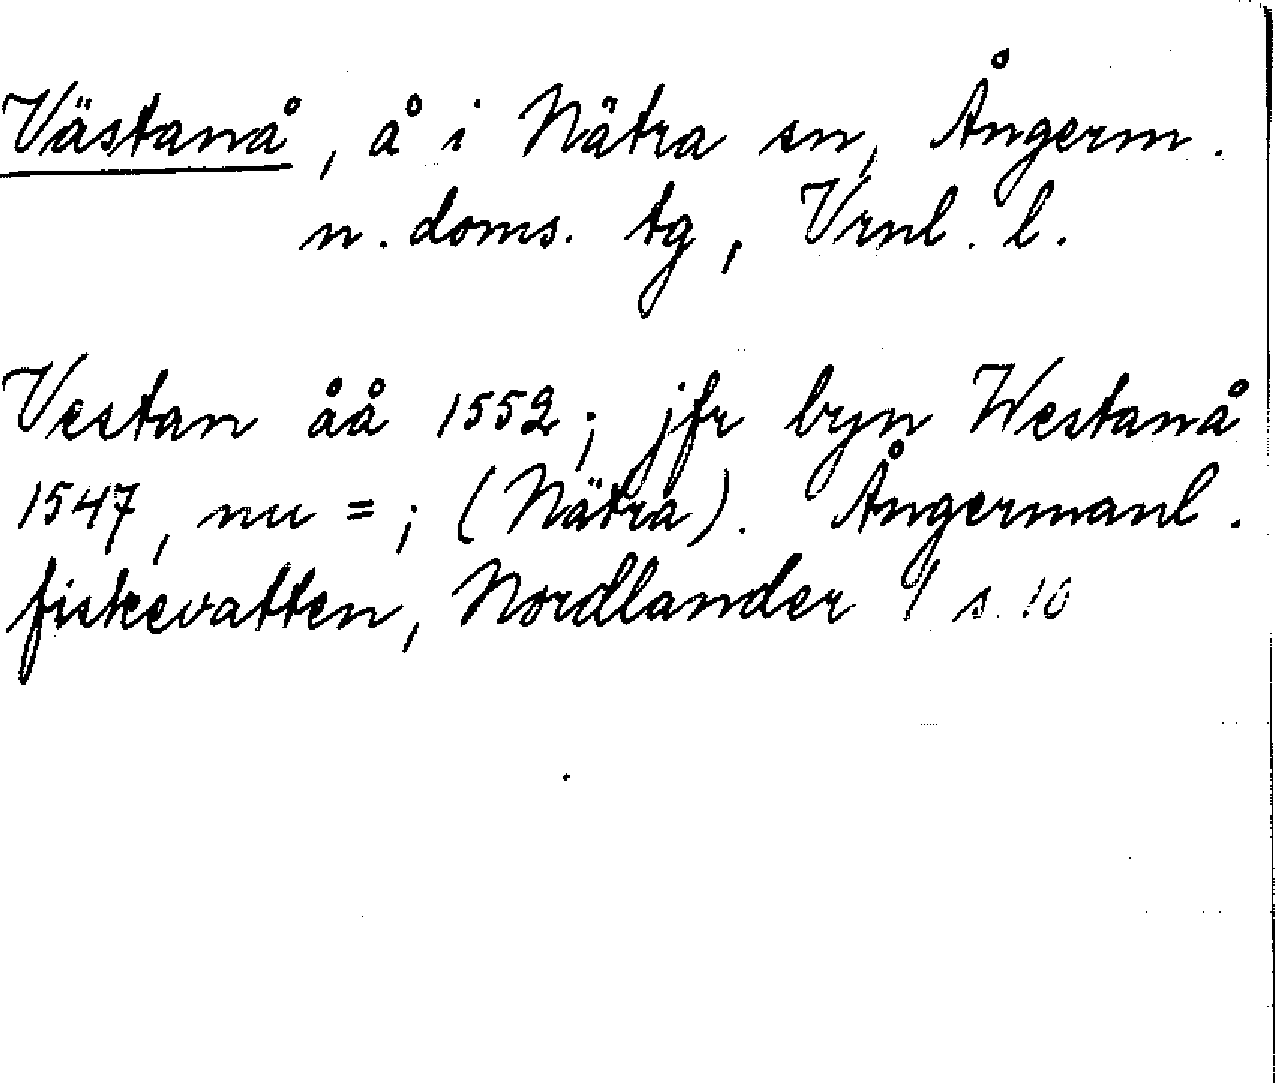 Västanå, å i Nätra sn, Ångerm.
n. doms. tg, Vrnl. l.
Vestan åå 1552; jfr byn Westanå
1547, nu =; (Nätra). Ångermanl.
fiskevatten, Nordlander s. 10